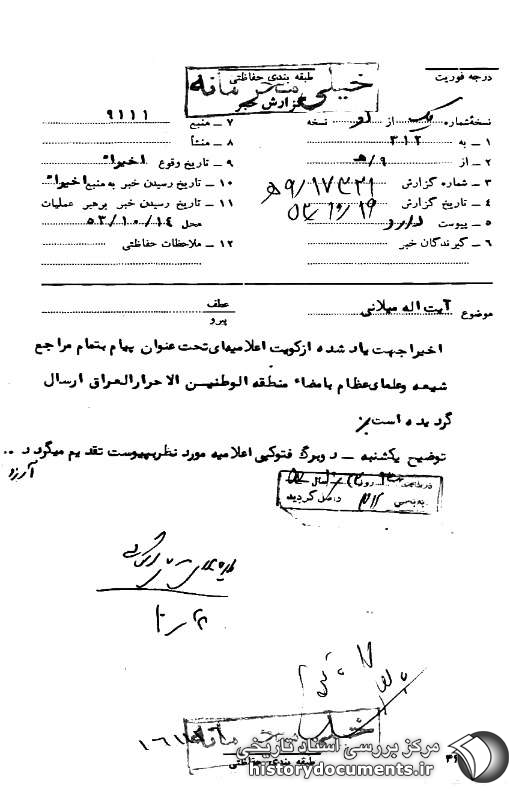 درجه فوریت
طبقه بندی حفاظتی
خیلی محرمانه
گزارش خبر
نسخه‌شماره یک از دو نسخه
۱ - به ۳۱۲
۲ - از ۹/ﻫ
۳ - شماره گزارش ۹/۱۷۳۳۱ ﻫ
۴ - تاریخ گزارش
۵ - پیوست دارد
۶ - گیرندگان خبر
۷ - منبع ۹۱۱۱
۸ - منشأ
۹ - تاریخ وقوع اخیرا"
۱۰ - تاریخ رسیدن خبر به‌منبع اخیرا"
۱۱ - تاریخ رسیدن خبر برهبر عملیات
محل ۵۳/۱۰/۱۴
۱۲ - ملاحظات حفاظتی
موضوع آیت اله میلانی
عطف
پیرو
اخیرا جهت یاد شده از کویت اعلامیه‌ای تحت عنوان پیام بتمام مراجع
شیعه و علمای عظام با مضاء منطقه الوطنیـن الاحرار العراق ارسال
گردیده است.
توضیح یکشنبه - دو برگ فتوکپی اعلامیه مورد نظر بپیوست تقدیم میگردد ..
واصل گردید
خیلی محرمانه
طبقه بندی حفاظتی
مرکز بررسی اسناد تاریخی
historydocuments.ir